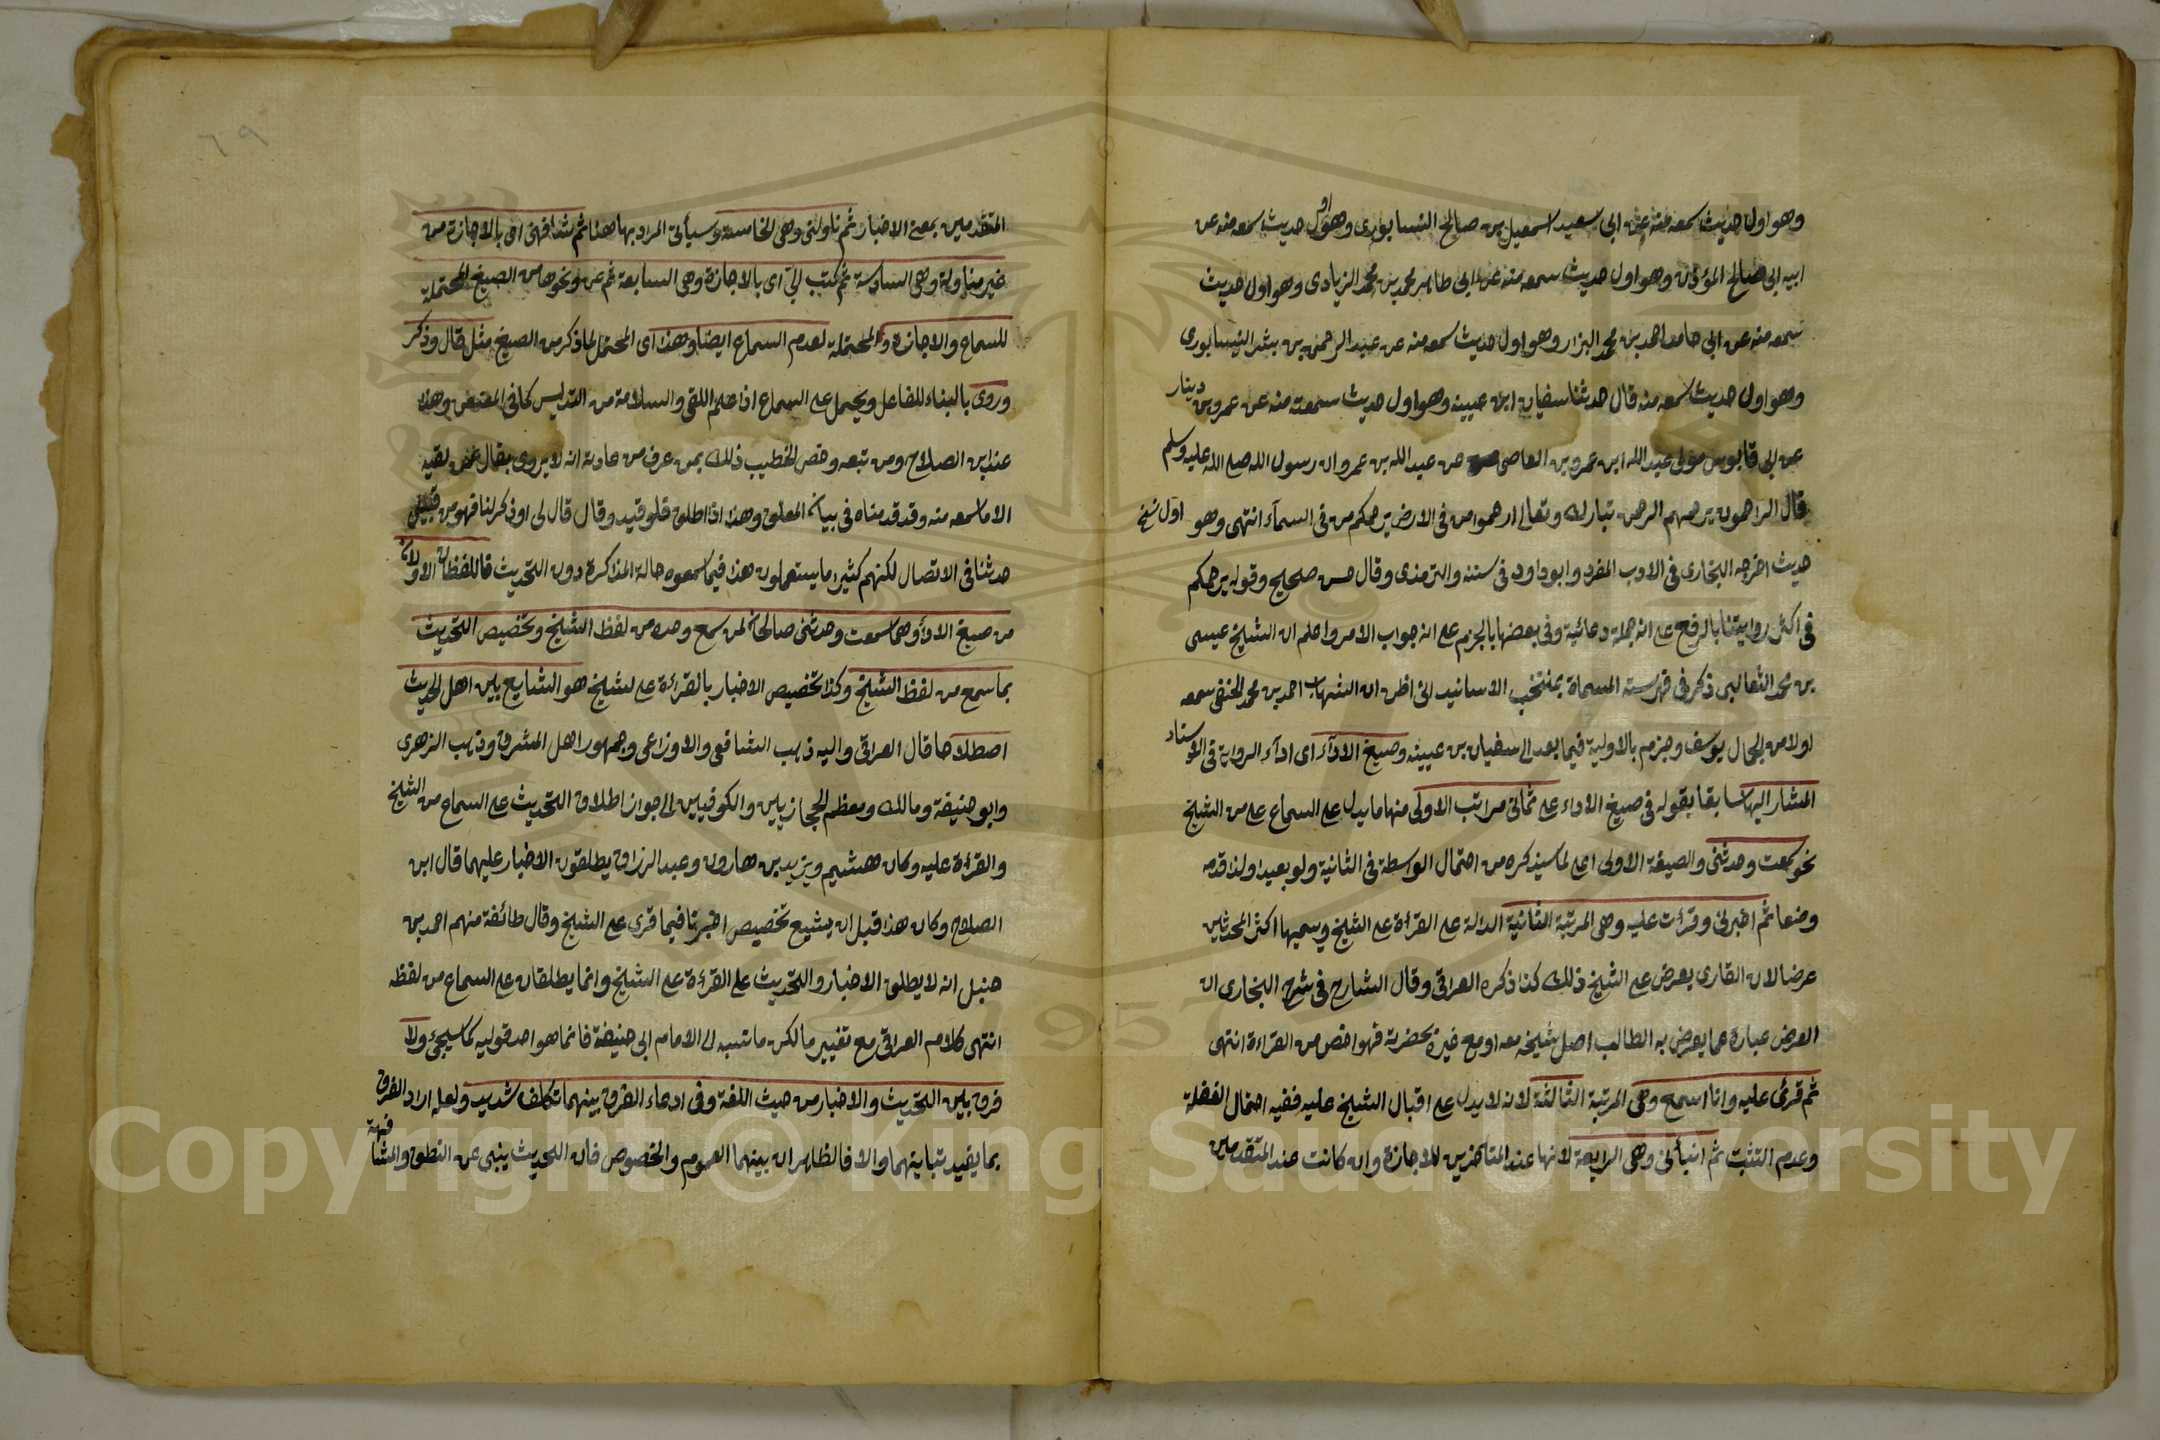 وهو اول حديث سمعه منه عن ابي سعيد اسمعيل بن صالح النيسابوري وهو اول حديث سمعه منه عن
ابيه ابي صالح المؤذن وهو اول حديث سمعه منه عن ابي طاهر محمد بن محمد الزيادي وهو اول حديث
سمعه منه عن ابي حامد احمد بن محمد البزار وهو اول حديث سمعه منه عن عبد الرحمن بن بشر النيسابوري
وهو اول حديث سمعه منه قال حدثنا سفيان ابن عيينه وهو اول حديث سمعته منه عن عمرو بن دينار
عن ابي قابوس مولى عبد الله ابن عمرو بن العاص عن عبد الله بن عمرو ان رسول الله صلى الله عليه وسلم
قال الراحمون يرحمهم الرحمن تبارك وتعالى ارحموا من في الارض يرحمكم من في السمآء انتهى وهو
حديث اخرجه البخاري في الادب المفرد وابو داود في سننه والترمذي وقال حسن صحيح وقوله يرحمكم
في اكثر روايتنا بالرفع على انه جملة دعائية وفي بعضها بالجزم على انه جواب الامر واعلم ان الشيخ عيسى
بن محمد الثعالبي ذكر في فهرسته المسماة بمنتخب الاسانيد اني اظن ان الشهاب احمد بن محمد الحنفي سمعه
اولا من الجمال يوسف وجزم بالاولية فيما بعد الى سفيان بن عيينه وصيغ الادآء اى ادآء الرواية في الاسناد
المشار اليها سابقا بقوله في صيغ الاداء على ثماني مراتب الاولى منها ما يدل على السماع على من الشيخ
نحو سمعت وحدثني والصيغة الاولى اعلى لما سيذكره من احتمال الواسطة في الثانية ولو بعيدا ولذا قدمه
وضعا ثم اخبرني وقرأت عليه وهي المرتبة الثانية الدالة على القرأة على الشيخ ويسميها اكثر المحدثين
عرضا لان القاري يعرض على الشيخ ذلك كذا ذكره العراقي وقال الشارح في شرح البخاري ان
العرض عبارة عما يعرض به الطالب اصل شيخه معه او مع غيره بحضرته فهو اخص من القراءة انتهى
ثم قرئ عليه وانا اسمع وهي المرتبة الثالثة لانه لا يدل على اقبال الشيخ عليه ففيه احتمال الغفلة
وعدم التثبت ثم انبأني وهي الرابعة لانها عند المتأخرين للاجازة وان كانت عند المتقدمين
٦٩
المتقدمين بمعنى الاخبار ثم ناولني وهي الخامسة وسيأتي المراد بها هنا ثم شافهني اى بالاجازة من
غير مناولة وهي السادسة ثم كتب الي اى بالاجازة وهي السابعة ثم عن ونحوها من الصيغ المحتملة
للسماع والاجازة والمحتملة لعدم السماع ايضا وهذا اى المحتمل لما ذكر من الصيغ مثل قال وذكر
وروى بالبناء للفاعل ويحمل على السماع اذا علم اللقي والسلامة من التدليس كما في المعنعن وهذا
عند ابن الصلاح ومن تبعه وخص الخطيب ذلك بمن عرف من عادته انه لا يروي بقال عمن لقيه
الا ما سمعه منه وقد قدمناه في بيان المعلق وهذا اذا اطلق فلو قيد وقال قال لي او ذكر لنا فهو من قبيل
حدثنا في الاتصال لكنهم كثيرا ما يستعملون هذا فيما سمعوه حالة المذاكرة دون التحديث فاللفظان الاولان
من صيغ الادآء وهما سمعت وحدثني صالحان لمن سمع وحده من لفظ الشيخ وتخصيص التحديث
بما سمع من لفظ الشيخ وكذا تخصيص الاخبار بالقراءة على الشيخ هو الشايع بين اهل الحديث
اصطلاحا قال العراقي واليه ذهب الشافعي والاوزاعي وجمهور اهل المشرق وذهب الزهري
وابو حنيفة ومالك ومعظم الحجازيين والكوفيين الى جواز اطلاق التحديث على السماع من الشيخ
والقرأة عليه وكان هشيم ويزيد بن هارون وعبد الرزاق يطلقون الاخبار عليهما قال ابن
الصلاح وكان هذا قبل ان يشيع تخصيص اخبرنا فيما قري على الشيخ وقال طائفة منهم احمد بن
حنبل انه لا يطلق الاخبار والتحديث على القرءة على الشيخ وانما يطلقان على السماع من لفظه
انتهى كلام العراقي مع تغيير ما لكن ما نسبه الى الامام ابي حنيفة فانما هو احد قوليه كما سيجئ ولا
فرق بين التحديث والاخبار من حيث اللغة وفي ادعاء الفرق بينهما تكلف شديد ولعله اراد الفرق
بما يفيد تباينهما والا فالظاهر ان بينهما العموم والخصوص فان التحديث ينبي عن النطق والمشافهة
Copyright © King Saud University
1957